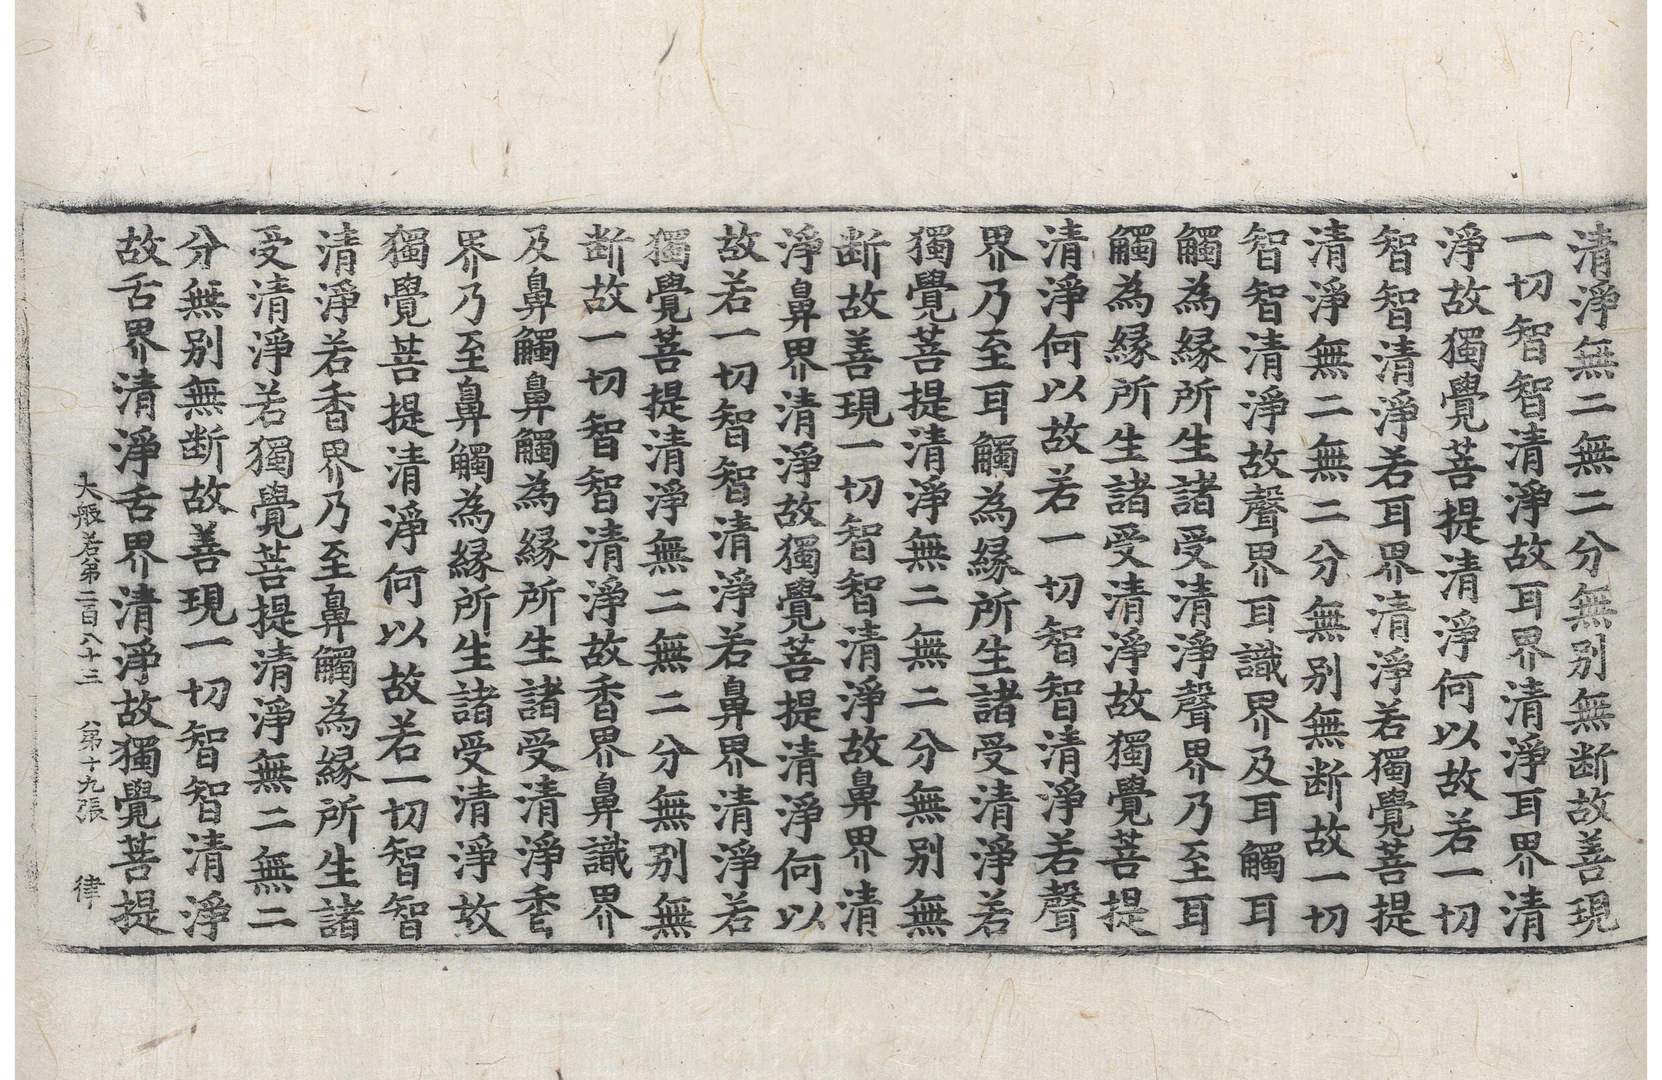 清淨無二無二分無別無断故善現
一切智智清淨故耳界清淨耳界清
淨故獨覺菩提清淨何以故若一切
智智清淨若耳界清淨若獨覺菩提
清淨無二無二分無別無断故一切
智智清淨故聲界耳識界及耳觸耳
觸為縁所生諸受清淨聲界乃至耳
觸為縁所生諸受清淨故獨覺菩提
清淨何以故若一切智智清淨若聲
界乃至耳觸為縁所生諸受清淨若
獨覺菩提清淨無二無二分無別無
断故善現一切智智清淨故鼻界清
淨鼻界清淨故獨覺菩提清淨何以
故若一切智智清淨若鼻界清淨若
獨覺菩提清淨無二無二分無別無
断故一切智智清淨故香界鼻識界
及鼻觸鼻觸為縁所生諸受清淨香
界乃至鼻觸為縁所生諸受清淨故
獨覺菩提清淨何以故若一切智智
清淨若香界乃至鼻觸為縁所生諸
受清淨若獨覺菩提清淨無二無二
分無別無断故善現一切智智清淨
故舌界清淨舌界清淨故獨覺菩提
大般若第二百八十三 第十九張 律